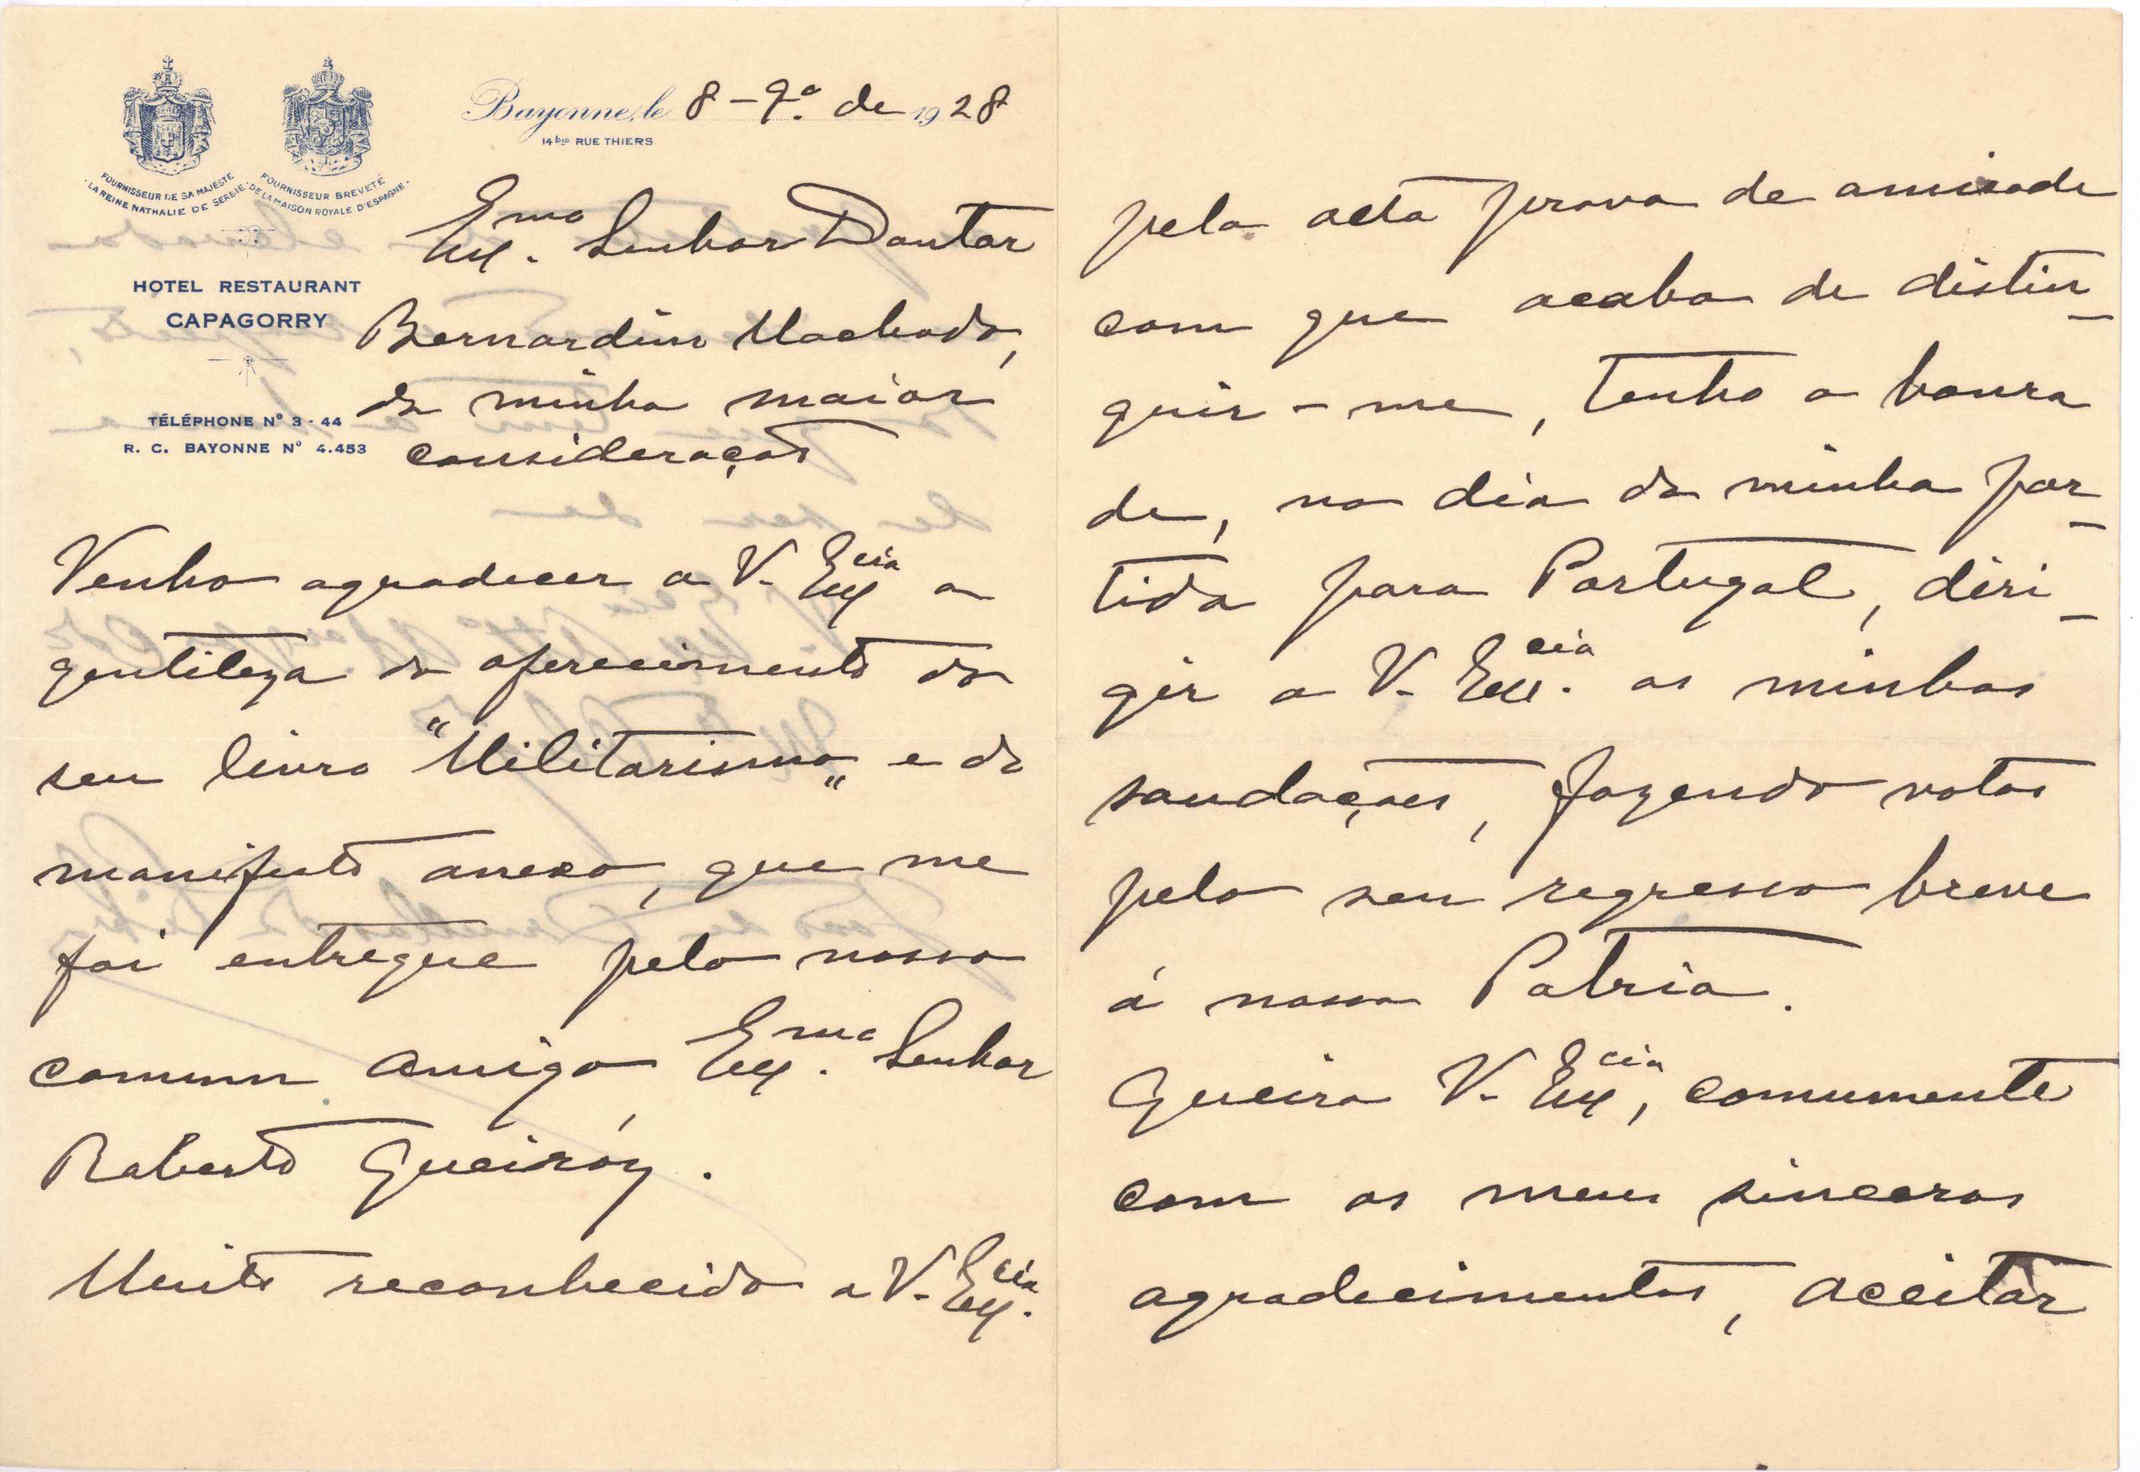 FOURNISSEUR DE SA MAJESTÉ
LA REINE NATHALIE DE SERBIE
FOURNISSEUR BREVETÉ
DE LA MAISON ROYALE D'ESPAGNE
HOTEL RESTAURANT
CAPAGORRY
TÉLÉPHONE Nº 3-44
R. C. BAYONNE Nº 4.453
Bayonne, le 8-9º. de 1928
14 bis RUE THIERS
Exmo. Senhor Doutor
Bernardino Machado,
da minha maior
consideração
Venho agradecer a V. Excia a
gentileza do oferecimento do
seu livro "Militarismo" e do
manifesto anexo, que me
foi entregue pelo nosso
comum amigo, Exmo. Senhor
Roberto Queiróz.
Muito reconhecido a V. Excia.
pela alta prova de amisade
com que acaba de distin-
guir-me, tenho a honra
de, no dia da minha par-
tida para Portugal, diri-
gir a V. Excia. as minhas
saudações, fazendo votos
pelo seu regresso breve
á nossa Patria.
Queira V. Excia, comumente
com os meus sinceros
agradecimentos, aceitar